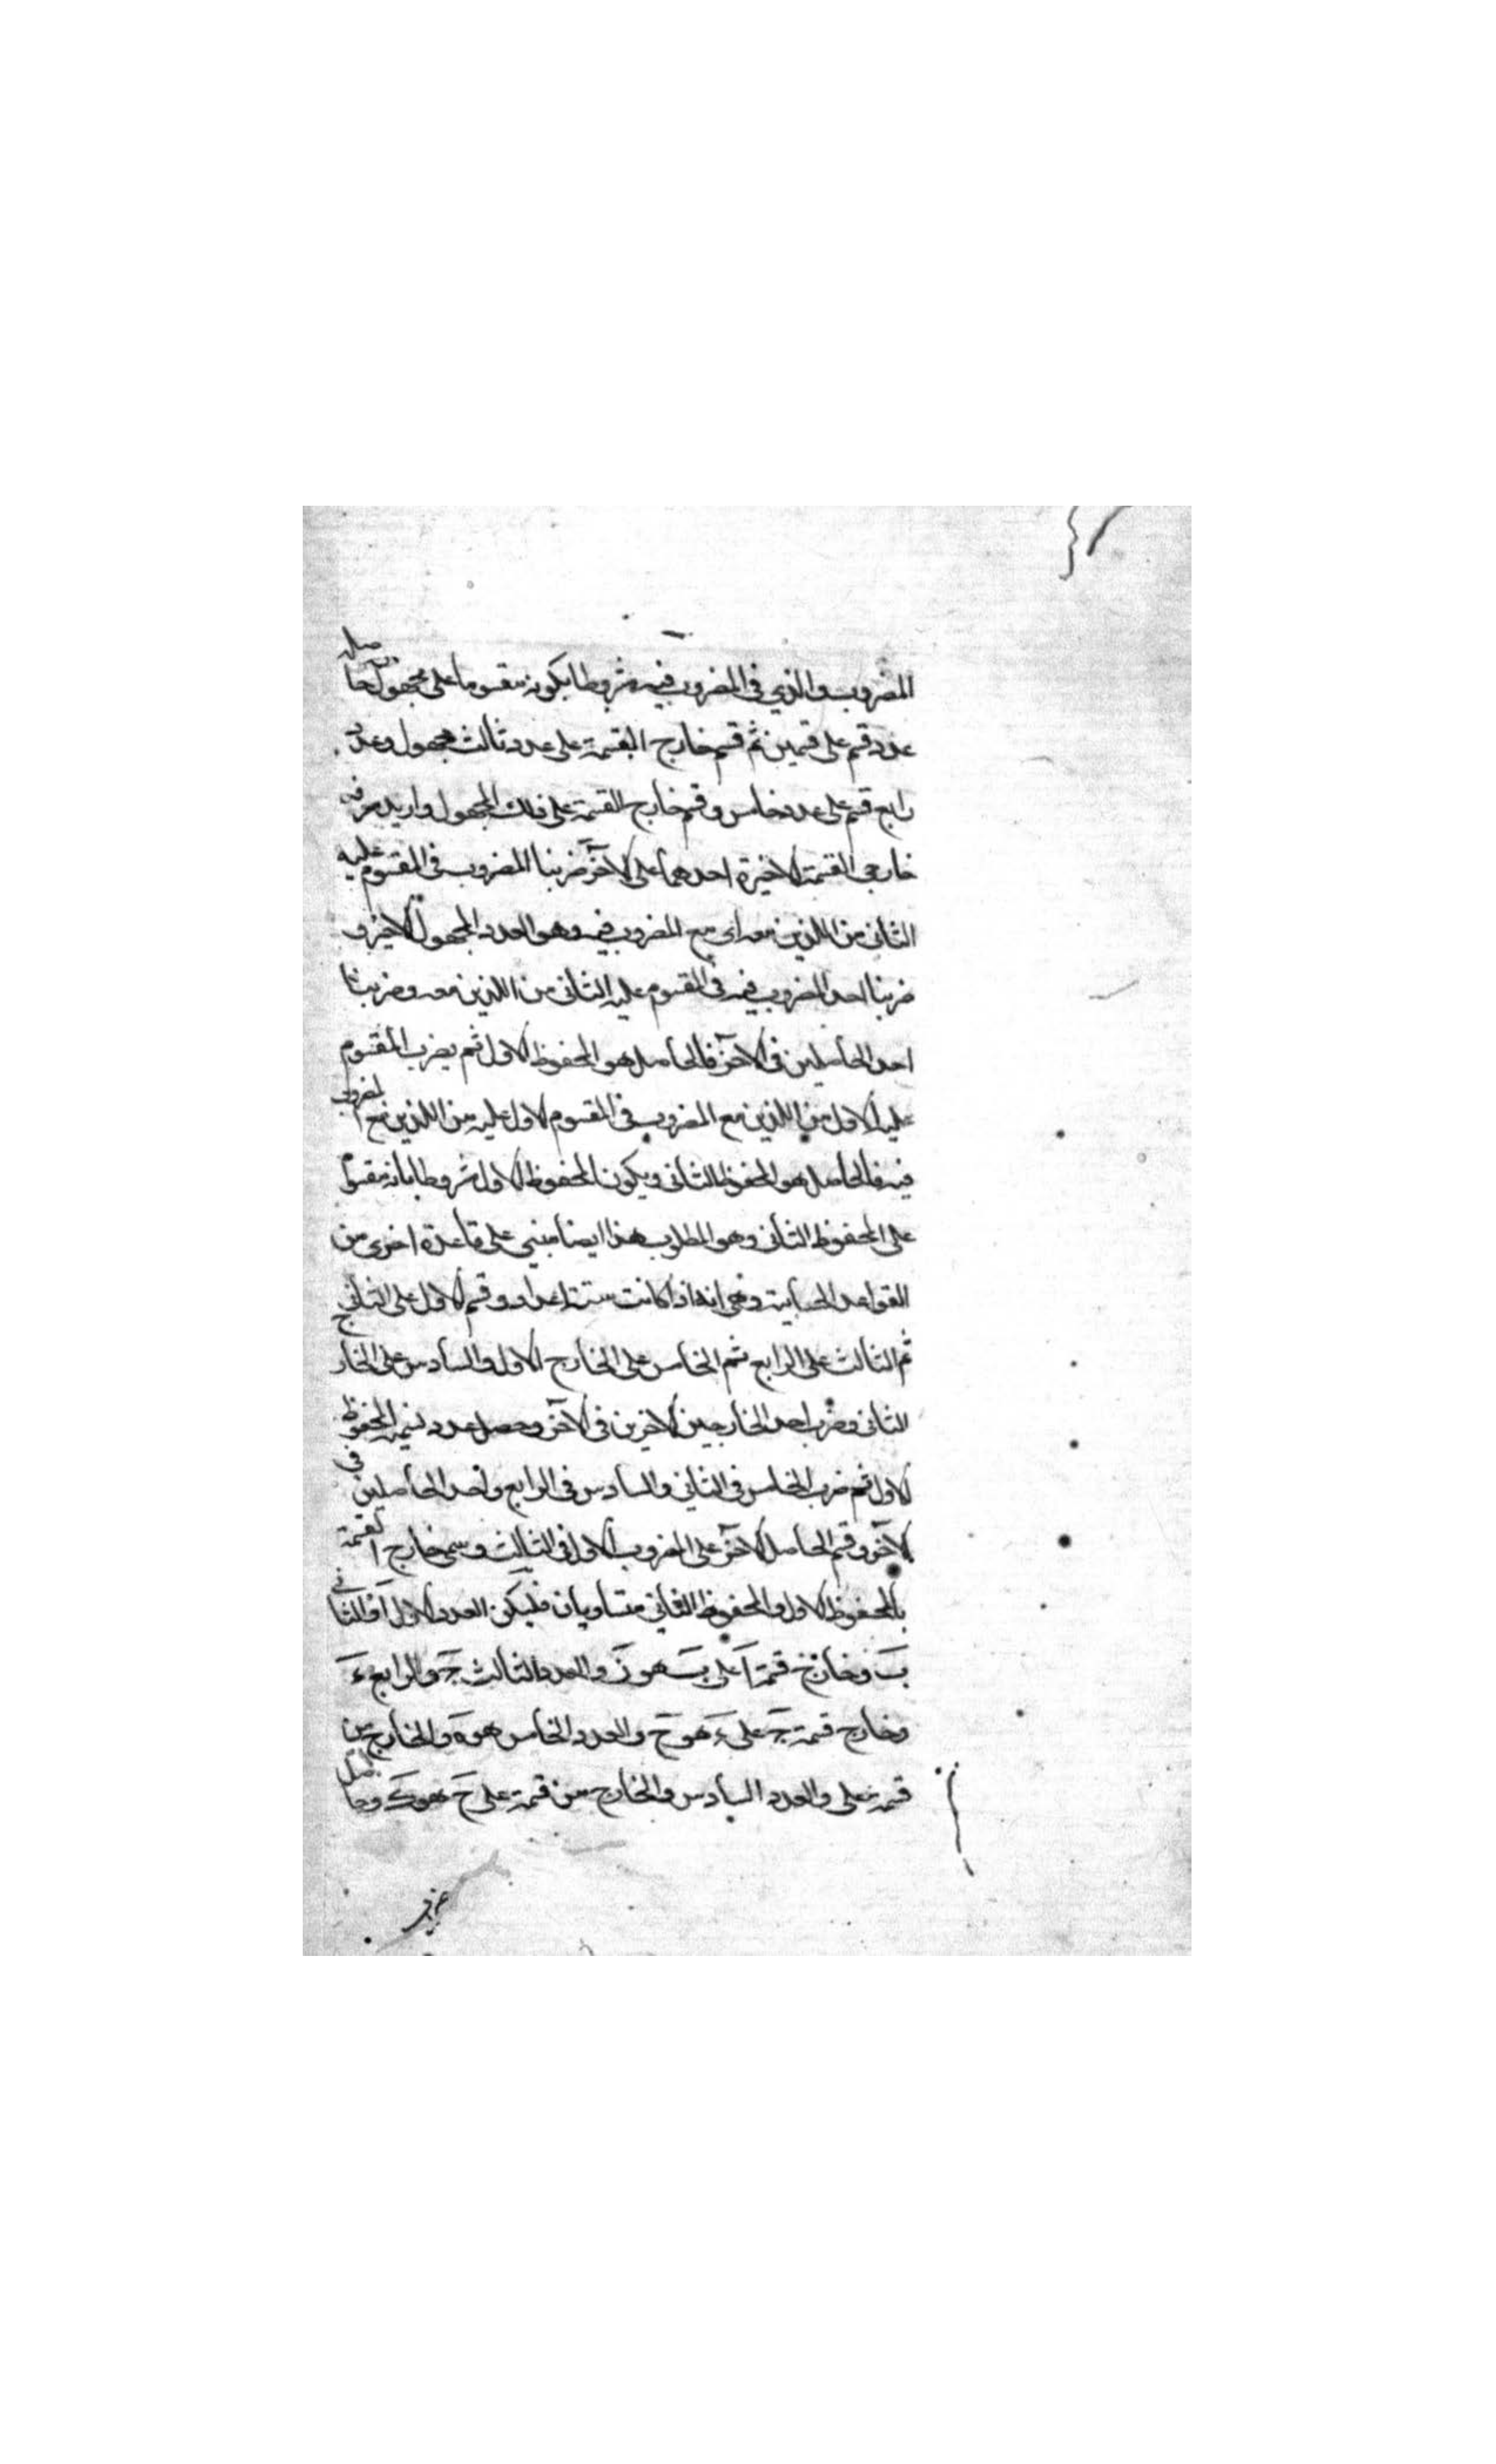 المضروب والذي في المضروب فيه شروطا بكونه مقسوما على مجهول حاصل
عدد قسم على قسمين ثم قسم خارج القسمة على عدد ثالث مجهول وعدد
رابع قسم على عدد خامس وقسم خارج القسمة على ذلك المجهول واريد
خارجي القسمة الاخيرة احدهما على الآخر ضربنا المضروب في المقسوم عليه
الثاني من اللذين معه اي مع المضروب فيه وهو العدد المجهول الاخير و
ضربنا احد المضروب فيه في المقسوم عليه الثاني من اللذين معه وضربنا
احد الحاصلين في الآخر فالحاصل هو المحفوظ الاول ثم يضرب المقسوم
عليه الاول من اللذين مع المضروب في المقسوم الاول عليه من اللذين مع المضروب
فيه فالحاصل هو المحفوظ الثاني ويكون المحفوظ الاول شروطا بانه مقسوم
على المحفوظ الثاني وهو المطلوب هذا ايضا مبني على قاعدة اخرى من
القواعد الحسابية وهي انه اذا كانت ستة اعداد وقسم الاول على الثاني
ثم الثالث على الرابع ثم الخامس على الخارج الاول والسادس على الخارج
الثاني وضرب احد الخارجين الاخيرين في الآخر وحصل عدد نسميه المحفوظ
الاول ثم ضرب الخامس في الثاني والسادس في الرابع واحد الحاصلين في
الآخر وقسم الحاصل الآخر على المضروب الاول في الثالث وسمي خارج القسمة
بالمحفوظ الاول والمحفوظ الثاني متساويان فليكن العدد الاول آ والثاني
ب وخارج قسمة آ على ب هو ز والعدد الثالث ج والرابع ء
وخارج قسمة ج على ء هو ح والعدد الخامس هو ه والخارج من
قسمة على والعدد السادس والخارج من قسمة على ح هو ك وحاصل